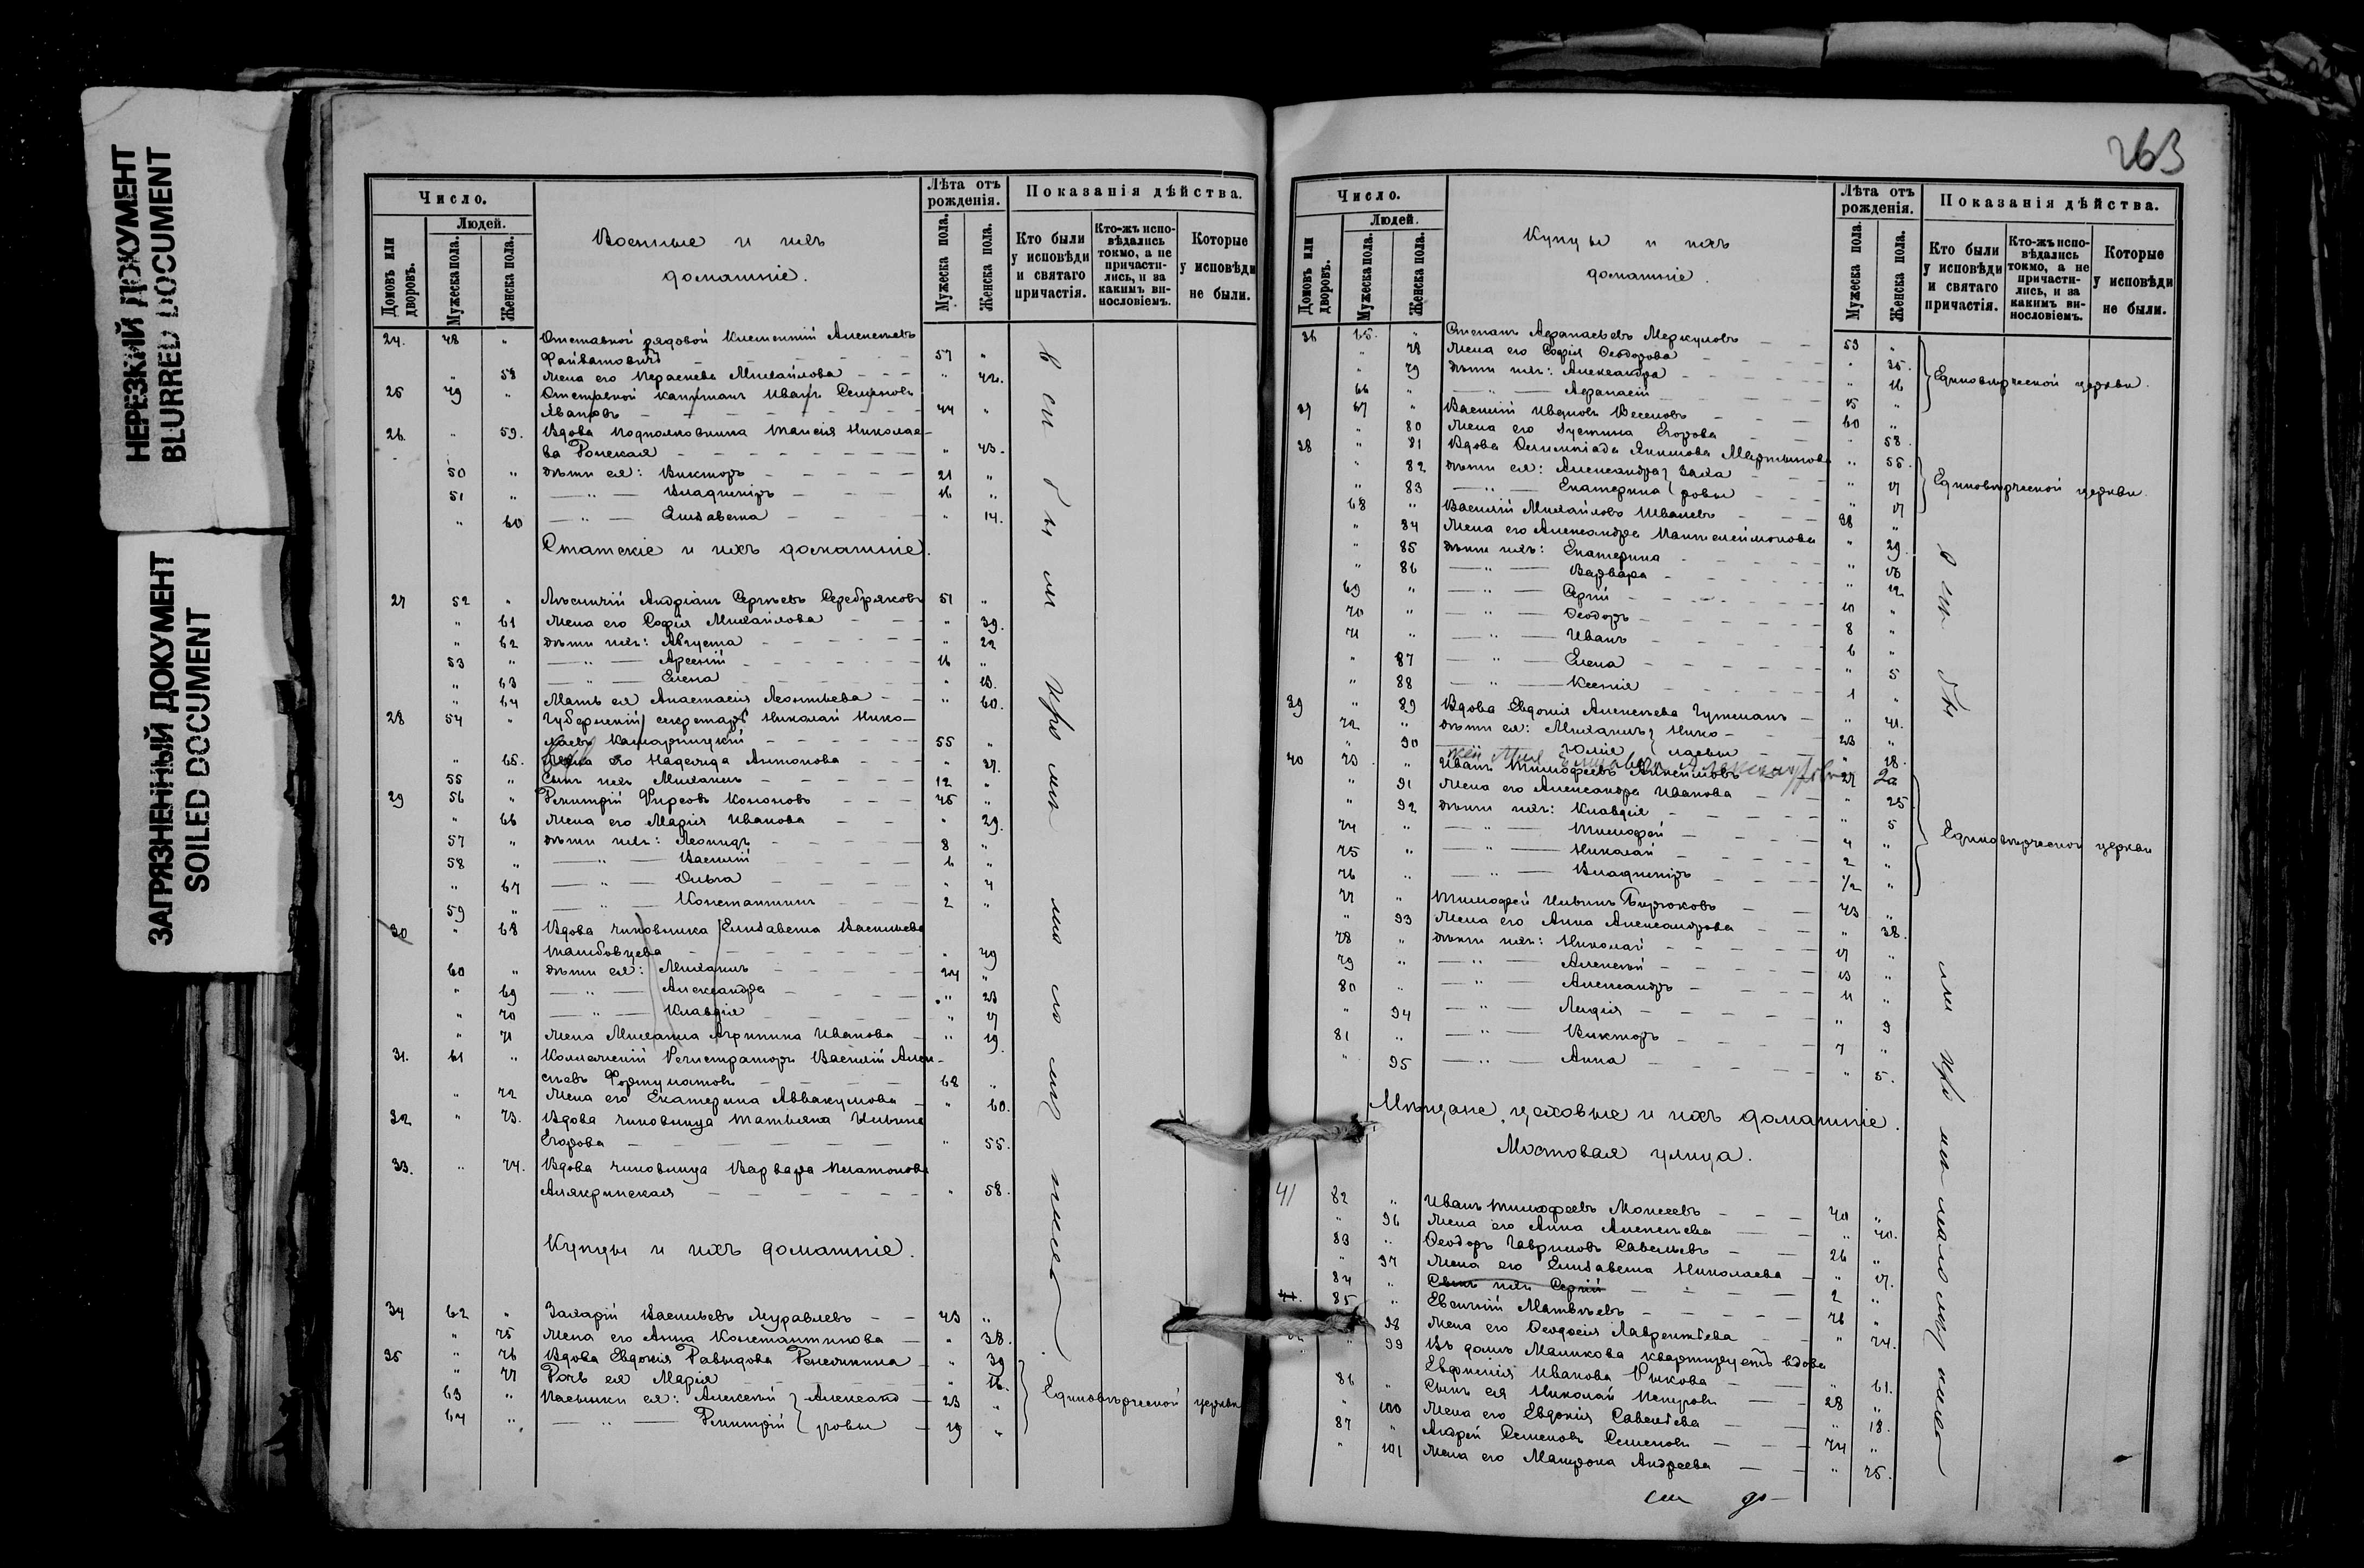 НЕРЕЗКИЙ ДОКУМЕНТ
BLURRED DOCUMENT
ЗАГРЯЗНЕННЫЙ ДОКУМЕНТ
SOILED DOCUMENT
Число. Лѣта отъ рожденія. Показанія дѣйства.
Домовъ или дворовъ. Людей. Мужеска пола. Женска пола.
Военные и ихъ
домашніе.
Мужеска пола. Женска пола.
Кто были у исповѣди и святаго причастія.
Кто-жъ исповѣдались токмо, а не причастились, и за какимъ винословіемъ.
Которые у исповѣди не были.
24. 48 " Отставной рядовой Климентій Алексѣевъ
57 "
" 58 Жена его Параскева Михайлова " 42.
25 49 " Отставной капитанъ Иванъ Семеновъ
Ивановъ 44 "
26. " 59. Вдова Подполковника Таисія Николае-
ва Ронская " 43.
50 " дѣти ея: Викторъ 21 "
51 " — " — Владиміръ 16 "
" 60 — " — Елизавета " 14.
Статскіе и ихъ домашніе.
27 52 " Лѣсничій Андріанъ Сергѣевъ Серебряковъ 51 "
" 61 Жена его Софія Михайлова " 39.
" 62 дѣти ихъ: Августа " 22
53 " — " — Арсеній 16 "
" 63 — " — Елена " 13.
" 64 Мать ея Анастасія Леонтьева " 60.
28 54 " Губернскій секретарь Николай Нико-
лаевъ 55 "
" 65. Жена его Надежда Антонова " 37.
55 " Сынъ ихъ Михаилъ 12 "
29 56 " Димитрій Фирсовъ Кононовъ 45 "
" 66 Жена его Марія Иванова " 29.
57 " дѣти ихъ: Леонидъ 8 "
58 " — " — Василій 6 "
" 67 — " — Ольга " 4
59 " — " — Константинъ 2 "
30 " 68 Вдова чиновника Елизавета Васильева
Тамбовцева " 49
60 " дѣти ея: Михаилъ 24 "
" 69 — " — Александра " 23
" 70 — " — Клавдія " 17
" 71 Жена Михаила Агрипина Иванова " 19.
31. 61 " Коллежскій Регистраторъ Василій Алек-
сѣевъ Фортунатовъ 68 "
" 72 Жена его Екатерина Аввакумова " 60.
32 " 73. Вдова чиновница Татьяна Ильина
Егорова " 55.
33. " 74. Вдова чиновница Варвара Платонова
Алякринская " 58.
Купцы и ихъ домашніе.
34 62 " Захарій Васильевъ Муравлевъ 43 "
" 75 Жена его Анна Константинова " 38.
35 " 76 Вдова Евдокія Давыдова " 39
" 77 Дочь ея Марія " 16.
63 " Пасынки ея: Алексѣй } Александ- 23 "
64 " — " — Димитрій } ровы 19 "
Единовѣрческой церкви
были при мѣ
263
Число. Лѣта отъ рожденія. Показанія дѣйства.
Домовъ или дворовъ. Людей. Мужеска пола. Женска пола.
Купцы и ихъ
домашніе.
Мужеска пола. Женска пола.
Кто были у исповѣди и святаго причастія.
Кто-жъ исповѣдались токмо, а не причастились, и за какимъ винословіемъ.
Которые у исповѣди не были.
36 65. " Степанъ Афанасьевъ Меркуловъ 53 "
" 78 Жена его Софія Ѳеодорова " 35.
" 79 дѣти ихъ: Александра " 16
66 " — Афанасій 15 "
Единовѣрческой церкви.
37 67 " Василій Ивановъ 60 "
" 80 Жена его Іустина Егорова " 58.
38 " 81 Вдова Олимпіада Акимова Мартынова " 55.
" 82 дѣти ея: Александра } Заха " 17
" 83 — " — Екатерина } ровы " 17
Единовѣрческой церкви.
68 " Василій Михайловъ 38 "
" 84 Жена его Александра Пантелеймонова " 29.
" 85 дѣти ихъ: Екатерина " 13
" 86 — " — Варвара " 12
69 " — " — Сергій 10 "
70 " — " — Ѳеодоръ 8 "
71 " — " — Иванъ 6 "
" 87 — " — Елена " 5
" 88 — " — Ксенія 1 "
39 " 89 Вдова Евдокія Алексѣева " 41.
72 " дѣти ея: Михаилъ } Нико- 23 "
" 90 Юлія } лаевы " 18.
40 73 " Иванъ Тимофеевъ 27
Елизавета Александрова 22
" 91 Жена его Александра Иванова " 25
" 92 дѣти ихъ: Клавдія " 5
74 " — " — Тимофей 4 "
75 " — " — Николай 2 "
76 " — " — Владиміръ 1/2 "
Единовѣрческой церкви
77 " Тимофей Ильинъ Бирюковъ 43 "
" 93 Жена его Анна Александрова " 38.
78 " дѣти ихъ: Николай 17 "
79 " — " — Алексѣй 13 "
80 " — " — Александръ 11 "
" 94 — " — Лидія " 9
81 " — " — Викторъ 7 "
" 95 — " — Анна " 5.
Мѣщане, цеховые и ихъ домашніе.
Мостовая улица.
41 82 " Иванъ Тимофеевъ Моисеевъ 40 "
" 96 Жена его Анна Алексѣева " 40.
83 " Ѳеодоръ Гавриловъ Савельевъ 26 "
" 97 Жена его Елизавета Николаева " 17.
84 " Сынъ ихъ Сергій 2 "
41. 85 " Евсигній Матвѣевъ 76 "
98 Жена его Ѳеодосія Лаврентьева " 74.
" 99 Въ домѣ Маликова квартируетъ вдова
Евфимія Иванова Рыкова " 61.
86 " Сынъ ея Николай Петровъ 28 "
" 100 Жена его Евдокія Савельева " 18.
87 " Андрей Семеновъ Семеновъ 74 "
" 101 Жена его Матрона Андреева " 75.